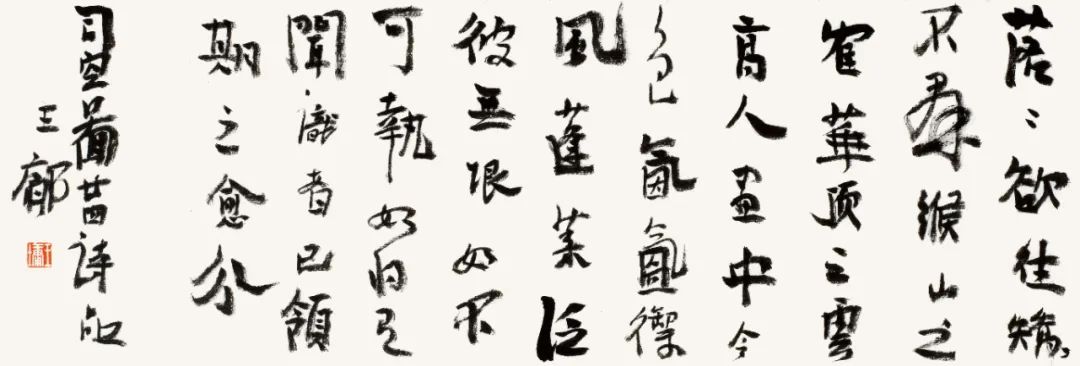 落〻欲往矯〻
不群緱山之
隺華顶之雲
高人畫中令
色氤氲御
風蓬葉泛
彼無垠如不
可執如将有
聞識者已領
期之愈分
司空圖廿四诗品
王鄘